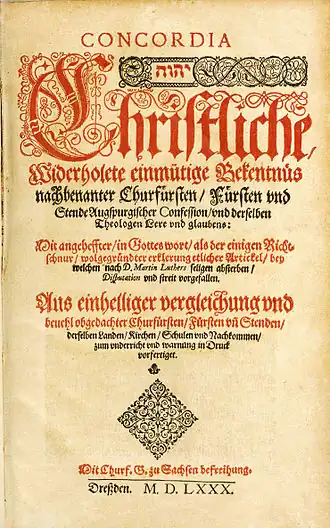 CONCORDIA
יהוה
Christliche/
Widerholete einmütige Bekentnüs
nachbenanter Churfürsten/ Fürsten vnd
Stende Augspurgischer Confession/ vnd derselben
Theologen Lere vnd glaubens:
Mit angeheffter/ in Gottes wort/ als der einigen Richt-
schnur/ wolgegründter erklerung etlicher Artickel/ bey
welchen nach D. Martin Luthers seligen absterben/
Disputation vnd streit vorgefallen.
Aus einhelliger vergleichung vnd
beuehl obgedachter Churfürsten/ Fürsten vn̄ Stenden/
derselben Landen/ Kirchen/ Schulen vnd Nachkommen/
zum vnderricht vnd warnung in Druck
vorfertiget.
Mit Churf. G. zu Sachsen befreihung.
Dreßden. M. D. LXXX.